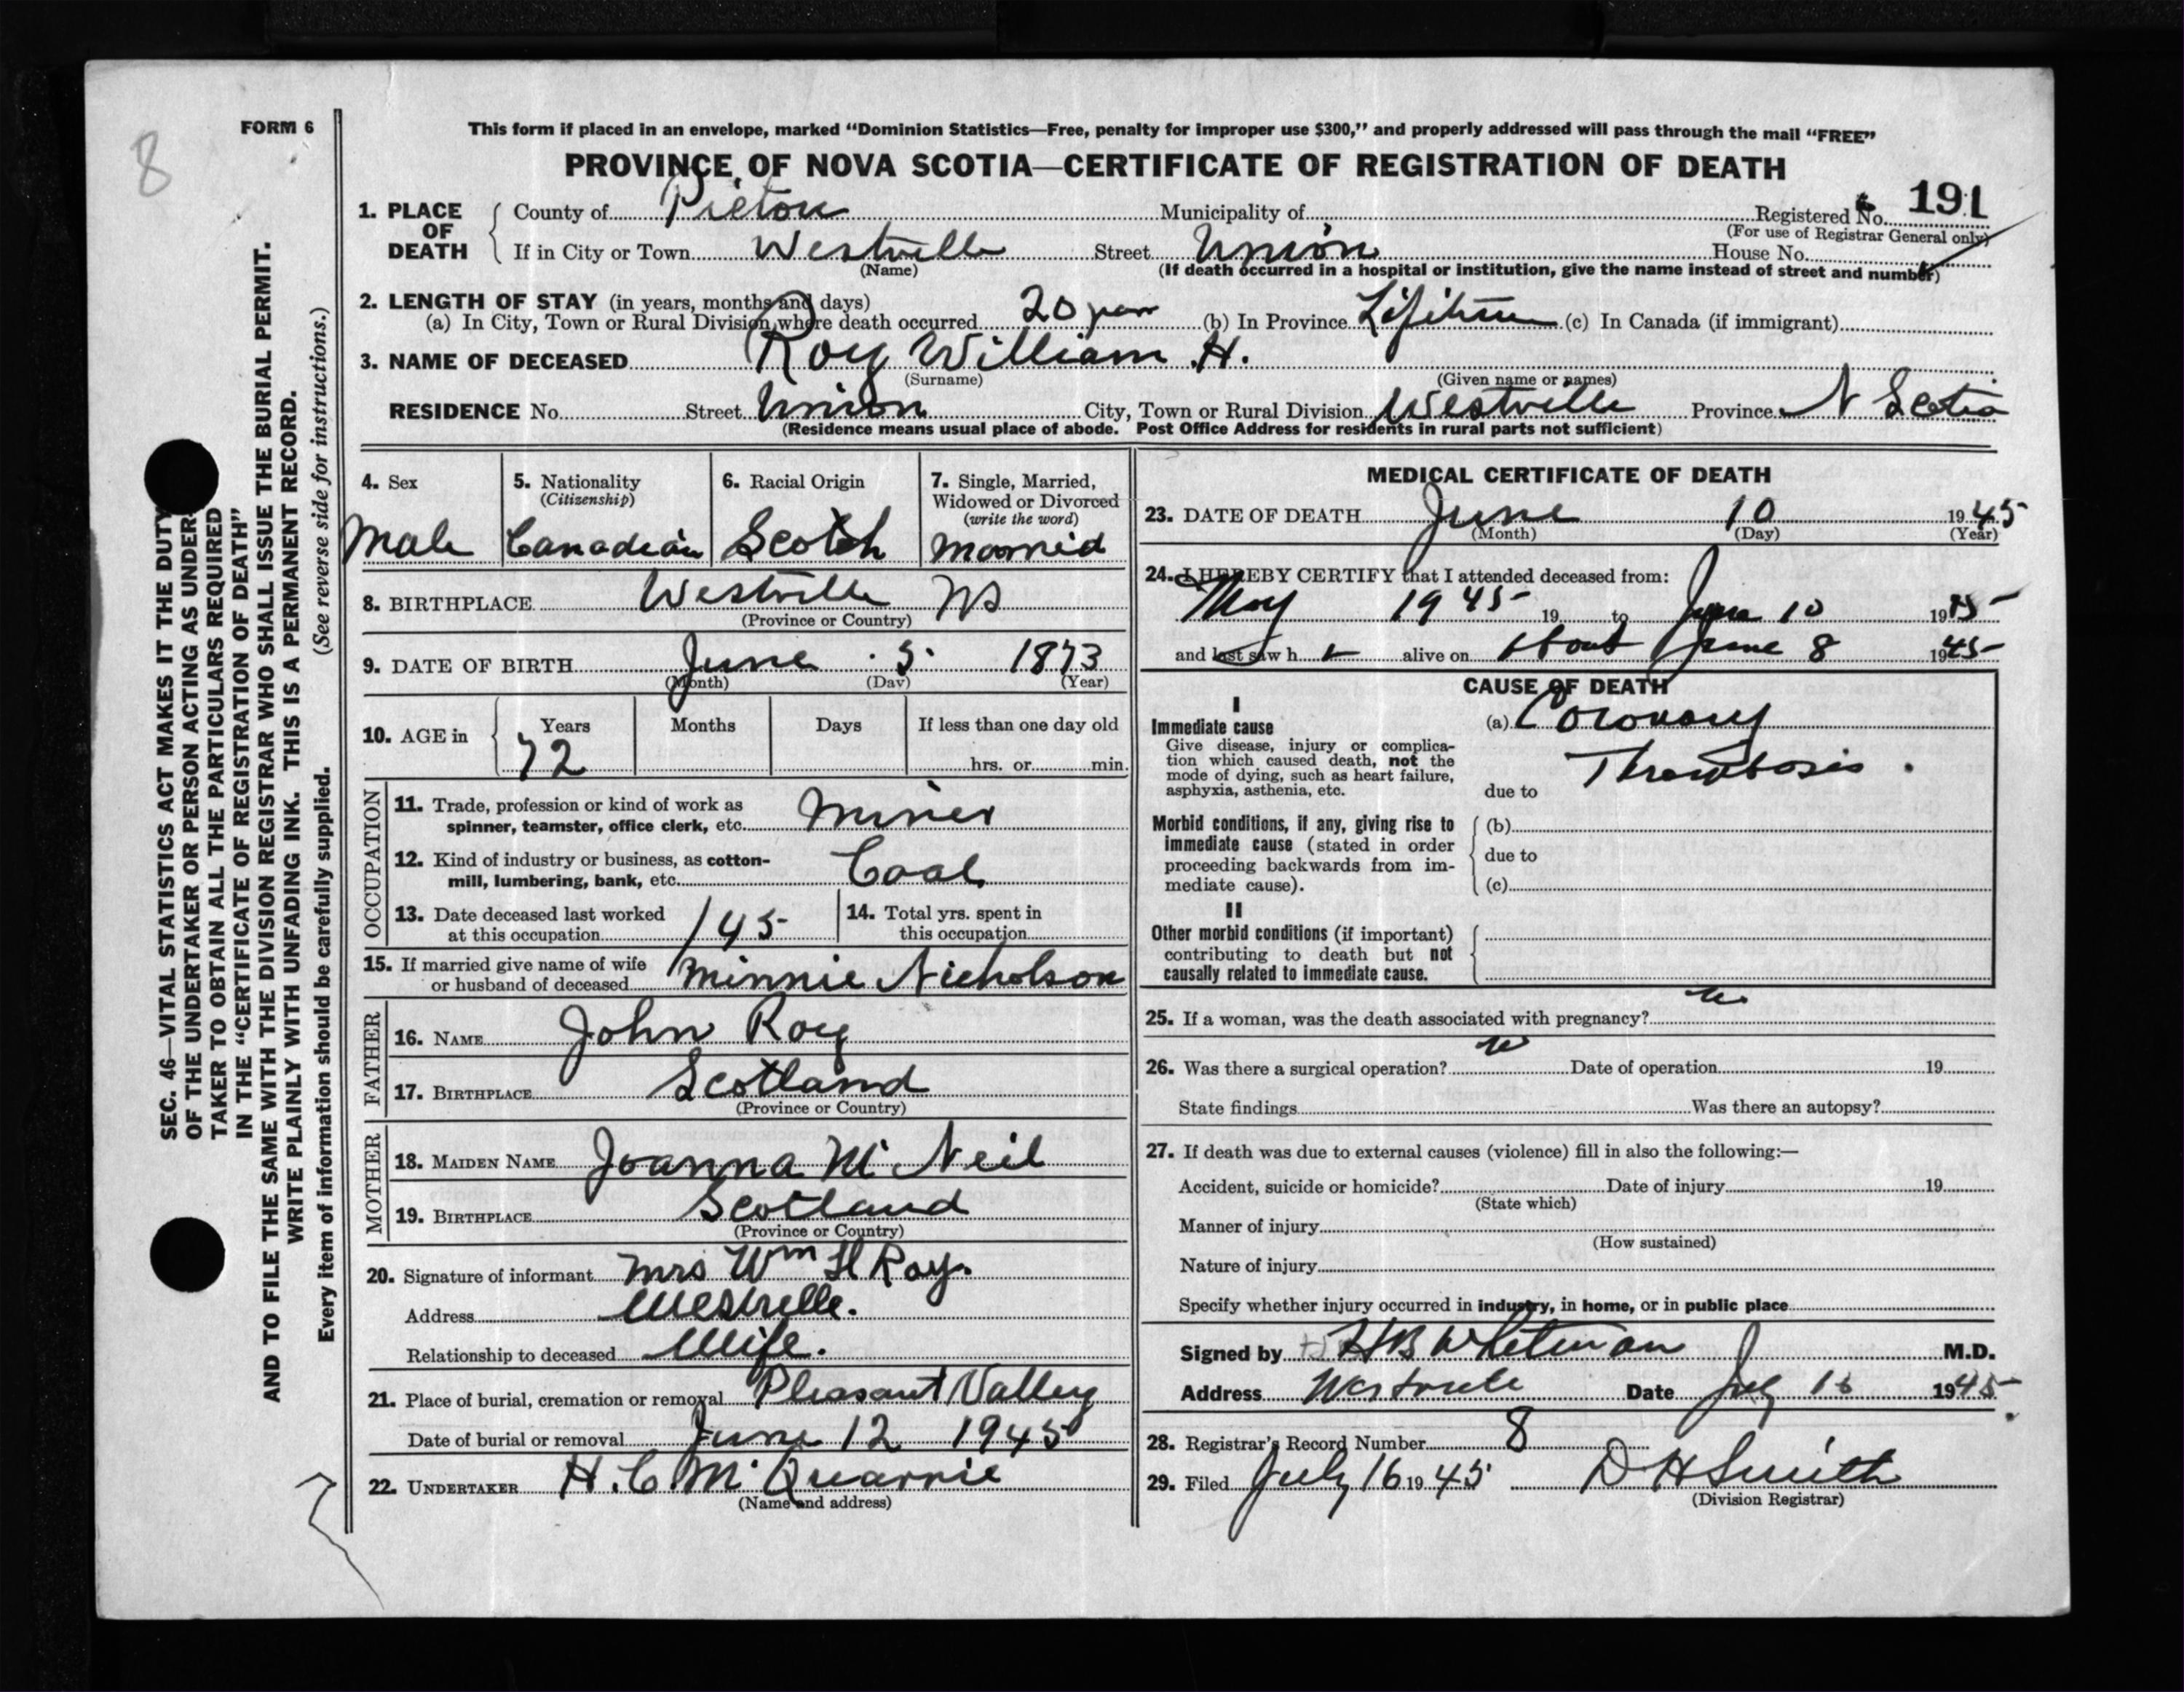 8
FORM 6
This form if placed in an envelope, marked "Dominion Statistics—Free, penalty for improper use $300," and properly addressed will pass through the mail "FREE"
PROVINCE OF NOVA SCOTIA—CERTIFICATE OF REGISTRATION OF DEATH
SEC. 46—VITAL STATISTICS ACT MAKES IT THE DUTY
OF THE UNDERTAKER OR PERSON ACTING AS UNDER-
TAKER TO OBTAIN ALL THE PARTICULARS REQUIRED
IN THE "CERTIFICATE OF REGISTRATION OF DEATH"
AND TO FILE THE SAME WITH THE DIVISION REGISTRAR WHO SHALL ISSUE THE BURIAL PERMIT.
WRITE PLAINLY WITH UNFADING INK. THIS IS A PERMANENT RECORD.
Every item of information should be carefully supplied. (See reverse side for instructions.)
1. PLACE OF DEATH County of Pictou Municipality of Registered No. 191
(For use of Registrar General only)
If in City or Town Westville Street Union House No.
(Name) (If death occurred in a hospital or institution, give the name instead of street and number)
2. LENGTH OF STAY (in years, months and days)
(a) In City, Town or Rural Division where death occurred 20 years (b) In Province Lifetime (c) In Canada (if immigrant)
3. NAME OF DECEASED Roy William H.
(Surname) (Given name or names)
RESIDENCE No. Street Union City, Town or Rural Division Westville Province N Scotia
(Residence means usual place of abode. Post Office Address for residents in rural parts not sufficient)
4. Sex 5. Nationality 6. Racial Origin 7. Single, Married,
(Citizenship) Widowed or Divorced
(write the word)
Male Canadian Scotch Married
8. BIRTHPLACE Westville NS
(Province or Country)
9. DATE OF BIRTH June 5 1873
(Month) (Day) (Year)
10. AGE in Years Months Days If less than one day old
72 hrs. or min.
OCCUPATION
11. Trade, profession or kind of work as
spinner, teamster, office clerk, etc. Miner
12. Kind of industry or business, as cotton-
mill, lumbering, bank, etc. Coal
13. Date deceased last worked 14. Total yrs. spent in
at this occupation 1/45 this occupation
15. If married give name of wife
or husband of deceased Minnie Nicholson
FATHER
16. NAME John Roy
17. BIRTHPLACE Scotland
(Province or Country)
MOTHER
18. MAIDEN NAME Joanna McNeil
19. BIRTHPLACE Scotland
(Province or Country)
20. Signature of informant Mrs Wm H Roy.
Address Westville.
Relationship to deceased Wife.
21. Place of burial, cremation or removal Pleasant Valley
Date of burial or removal June 12 1945
22. UNDERTAKER H. C. McQuarrie
(Name and address)
MEDICAL CERTIFICATE OF DEATH
23. DATE OF DEATH June 10 1945
(Month) (Day) (Year)
24. I HEREBY CERTIFY that I attended deceased from:
May 1945 19 to June 10 1945
and last saw h alive on About June 8 1945
CAUSE OF DEATH
I
Immediate cause (a) Coronary
Give disease, injury or complica-
tion which caused death, not the Thrombosis.
mode of dying, such as heart failure,
asphyxia, asthenia, etc. due to
Morbid conditions, if any, giving rise to (b)
immediate cause (stated in order due to
proceeding backwards from im-
mediate cause). (c)
II
Other morbid conditions (if important)
contributing to death but not
causally related to immediate cause.
25. If a woman, was the death associated with pregnancy?
26. Was there a surgical operation? Date of operation 19
State findings Was there an autopsy?
27. If death was due to external causes (violence) fill in also the following:—
Accident, suicide or homicide? Date of injury 19
(State which)
Manner of injury
(How sustained)
Nature of injury
Specify whether injury occurred in industry, in home, or in public place
Signed by H B Whitman M.D.
Address Westville Date July 1945
28. Registrar's Record Number 8
29. Filed July 16 1945 D H Smith
(Division Registrar)